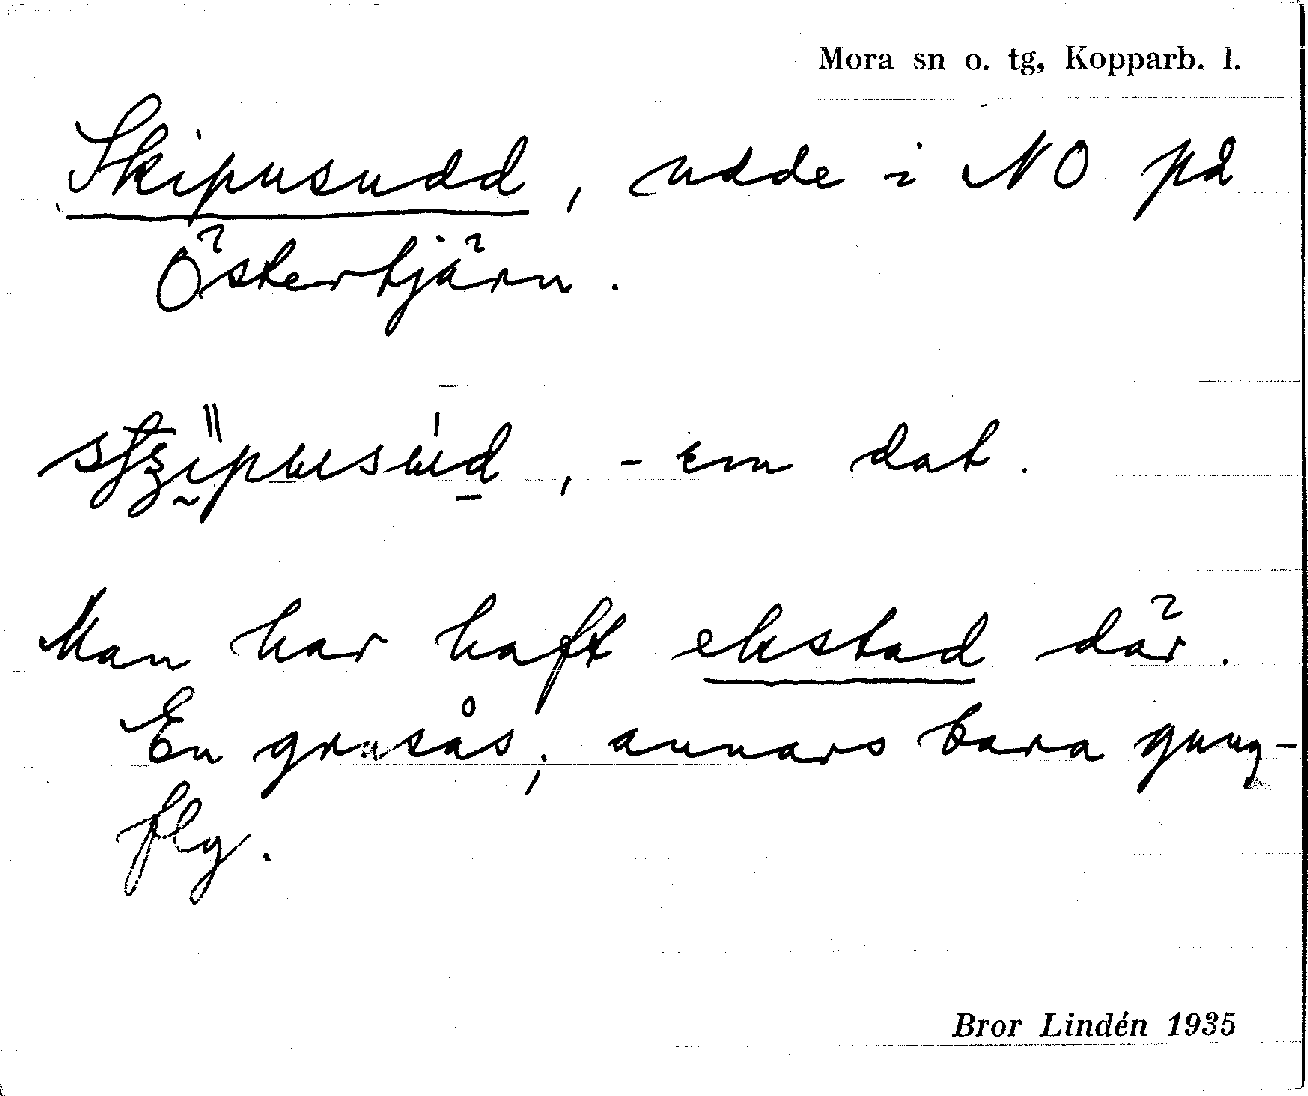 Mora sn o. tg, Kopparb. l.
Skipusudd, udde i NO på
Östertjärn.
, - dat.
Man har haft ekstad där.
En grusås, annars bara gung-
fly.
Bror Lindén 1935